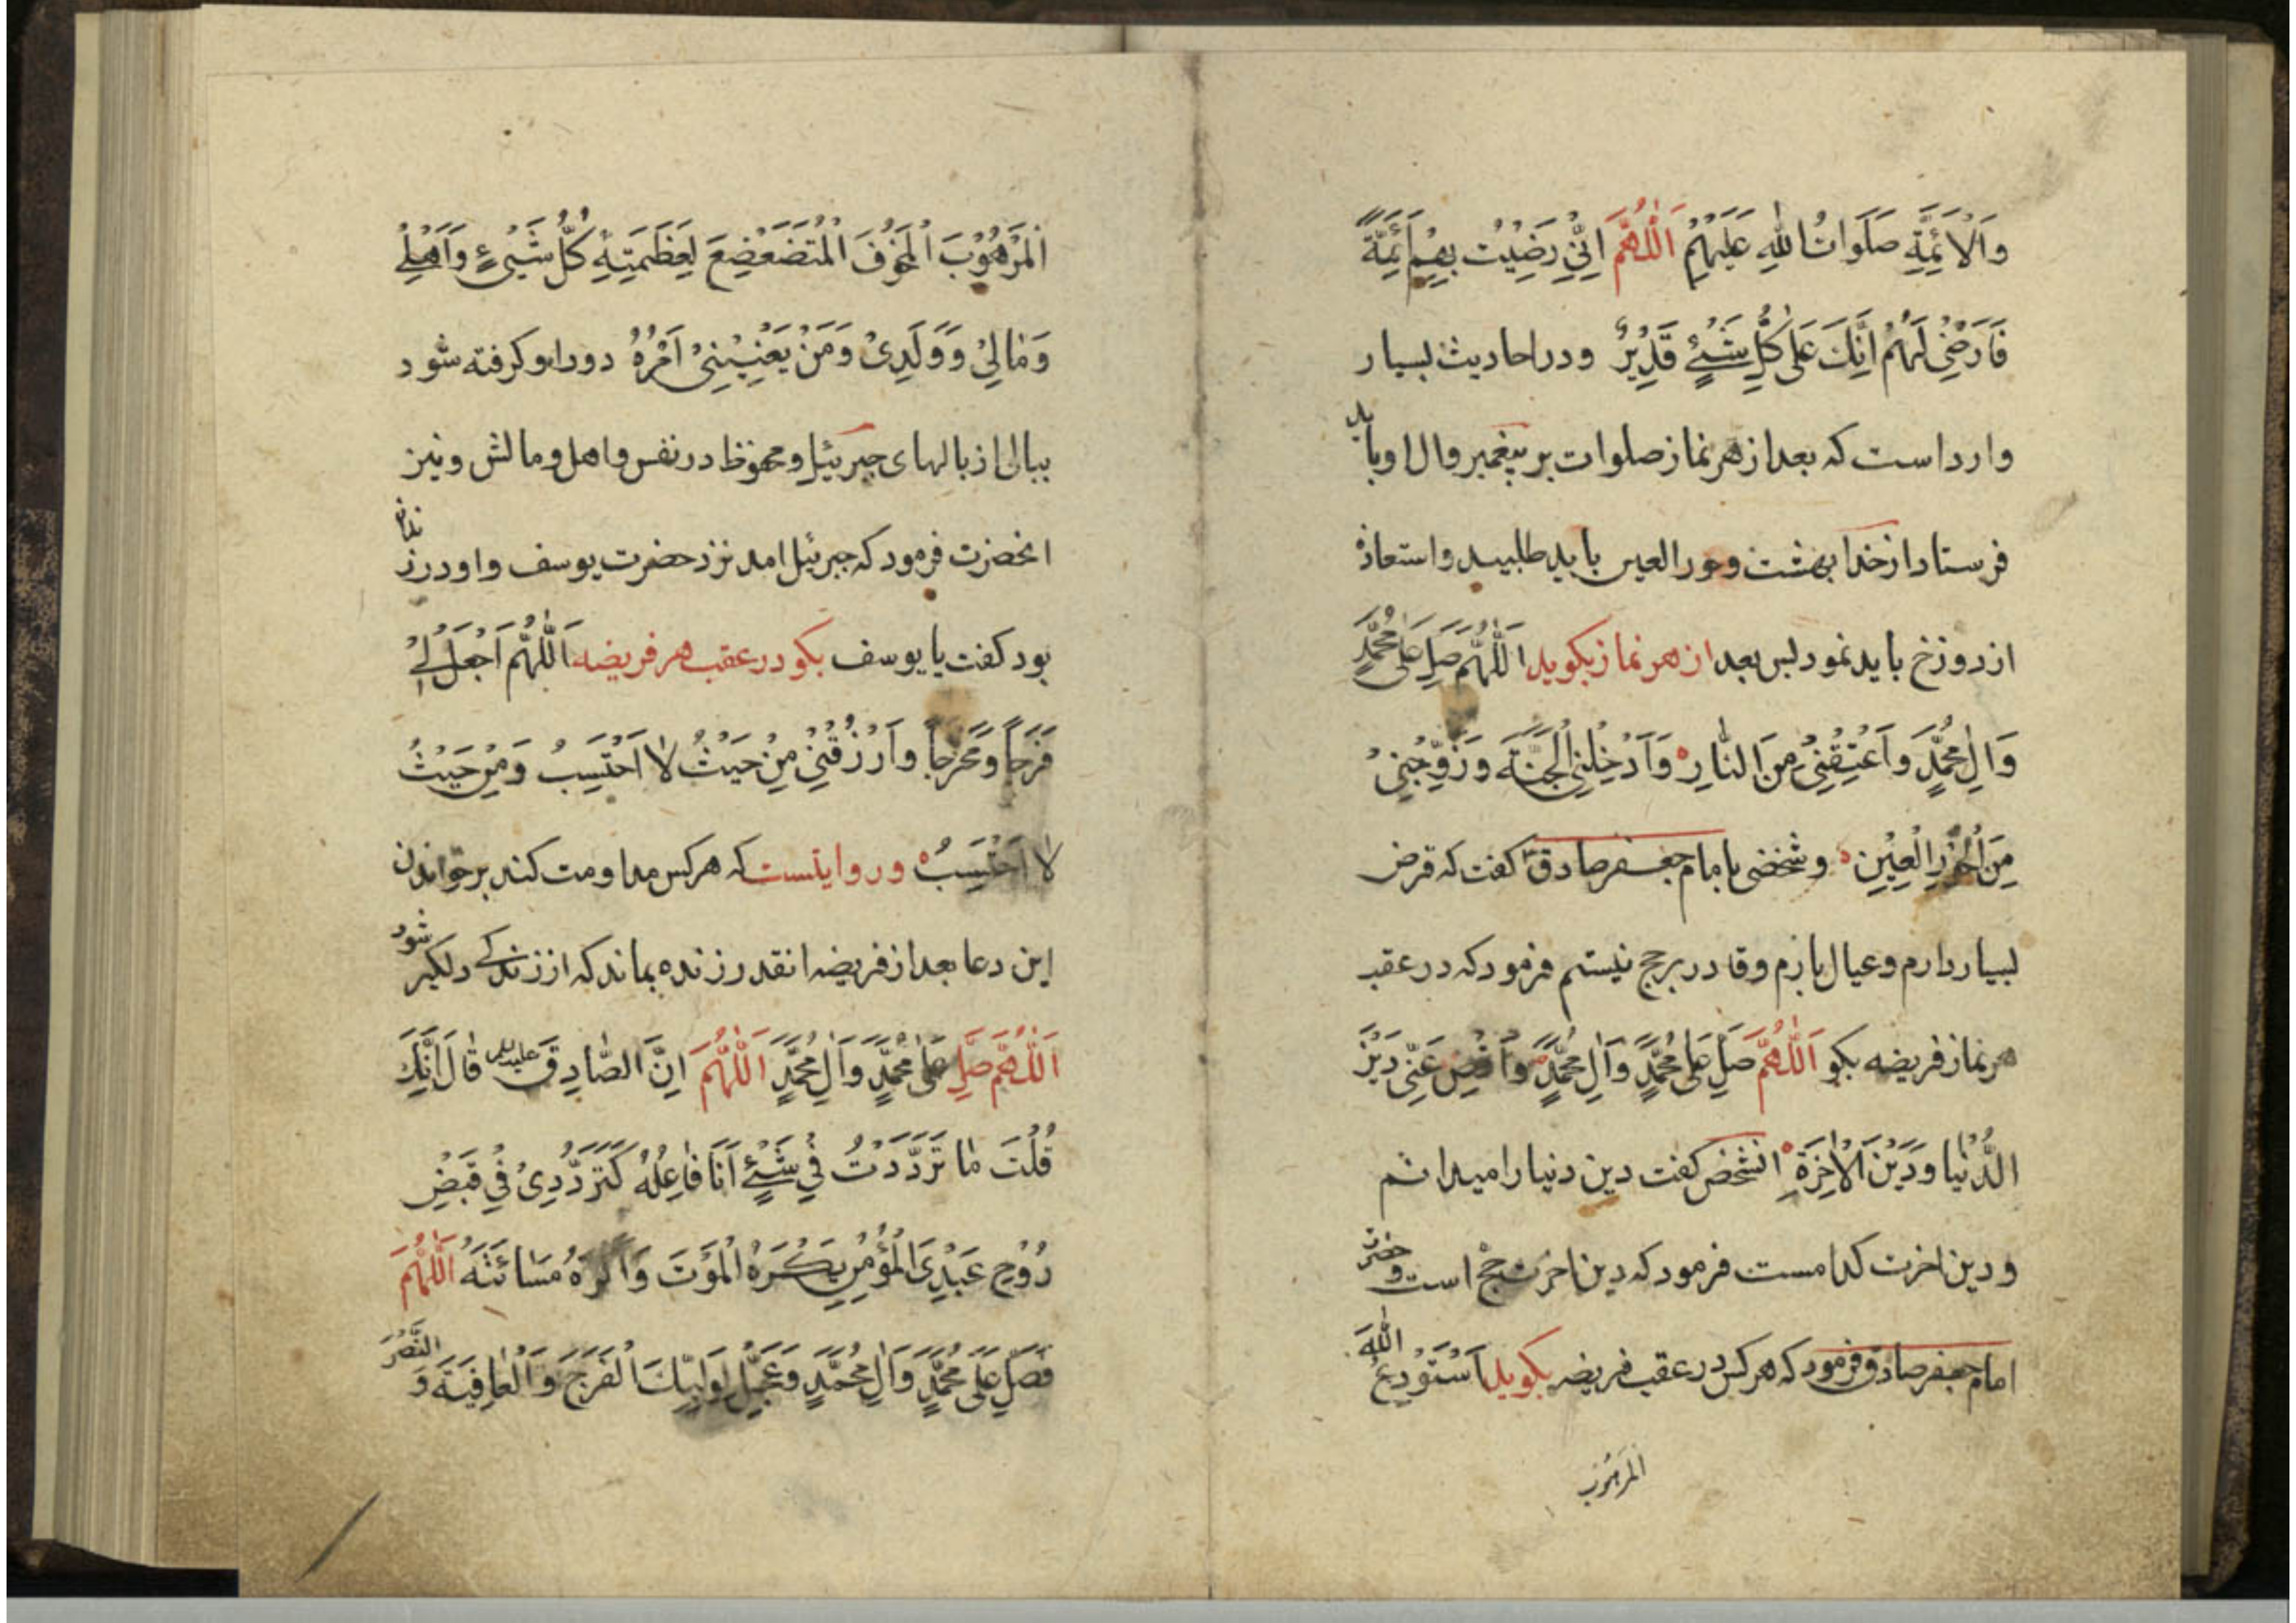 وَالْاَئِمَّةِ صَلَوَاتُ اللهِ عَلَيْهِمْ اَللّٰهُمَّ اِنّٖي رَضِيْتُ بِهِمْ اَئِمَّةً
فَارْضِنِيْ لَهُمْ اِنَّكَ عَلٰى كُلِّ شَيْئٍ قَدِيْرٌ ودر احاديث بسيار
وارد است كه بعد از هر نماز صلوات بر پيغمبر وال او بايد
فرستاد از خدا بهشت وحور العين بايد طلبيد واستعاذه
از دوزخ بايد نمود پس بعد از هر نماز بكويد اَللّٰهُمَّ صَلِّ عَلٰى مُحَمَّدٍ
وَاٰلِ مُحَمَّدٍ وَاَعْتِقْنِيْ مِنَ النَّارِ وَاَدْخِلْنِي الْجَنَّةَ وَزَوِّجْنِيْ
مِنَ الْحُوْرِ الْعِيْنِ وشخصى با امام جعفر صادق كفت كه قرض
بسيار دارم وعيال بارم وقادر بر حج نيستم فرمود كه در عقب
هر نماز فريضه بكو اَللّٰهُمَّ صَلِّ عَلٰى مُحَمَّدٍ وَاٰلِ مُحَمَّدٍ وَاقْضِ عَنِّيْ دَيْنَ
الدُّنْيَا وَدَيْنَ الْاٰخِرَةِ انشخص كفت دين دنيا را ميدانم
ودين اخرت كدامست فرمود كه دين اخرت حج است وحضرت
امام جعفر صادق فرمود كه هر كس در عقب فريضه بكويد اَسْتَوْدِعُ اللهَ
المرهوب
الْمَرْهُوْبَ الْمَخُوْفَ الْمُتَضَعْضِعَ لِعَظَمَتِهٖ كُلُّ شَيْئٍ وَاَهْلِيْ
وَمَالِيْ وَوَلَدِيْ وَمَنْ يَعْنِيْنِيْ اَمْرُهُ دور او كرفته شود
ببالى از بالهاى جبرئيل ومحفوظ در نفس واهل ومالش ونيز
انحضرت فرمود كه جبرئيل امد نزد حضرت يوسف واو در زندان
بود كفت يا يوسف بكو در عقب هر فريضه اَللّٰهُمَّ اجْعَلْ لِيْ
فَرَجًا وَمَخْرَجًا وَارْزُقْنِيْ مِنْ حَيْثُ لَا اَحْتَسِبُ وَمِنْ حَيْثُ
لَا اَحْتَسِبُ ودر روايتست كه هر كس مداومت كند بر خواندن
اين دعا بعد از فريضه انقدر زنده بماند كه از زندكى دلكير شود
اَللّٰهُمَّ صَلِّ عَلٰى مُحَمَّدٍ وَاٰلِ مُحَمَّدٍ اَللّٰهُمَّ اِنَّ الصَّادِقَ عليه السلام قَالَ اِنَّكَ
قُلْتَ مَا تَرَدَّدْتُ فِيْ شَيْئٍ اَنَا فَاعِلُهُ كَتَرَدُّدِيْ فِيْ قَبْضِ
رُوْحِ عَبْدِيَ الْمُؤْمِنِ يَكْرَهُ الْمَوْتَ وَاَكْرَهُ مَسَائَتَهُ اَللّٰهُمَّ
فَصَلِّ عَلٰى مُحَمَّدٍ وَاٰلِ مُحَمَّدٍ وَعَجِّلْ لِوَلِيِّكَ الْفَرَجَ وَالْعَافِيَةَ وَالنَّصْرَ